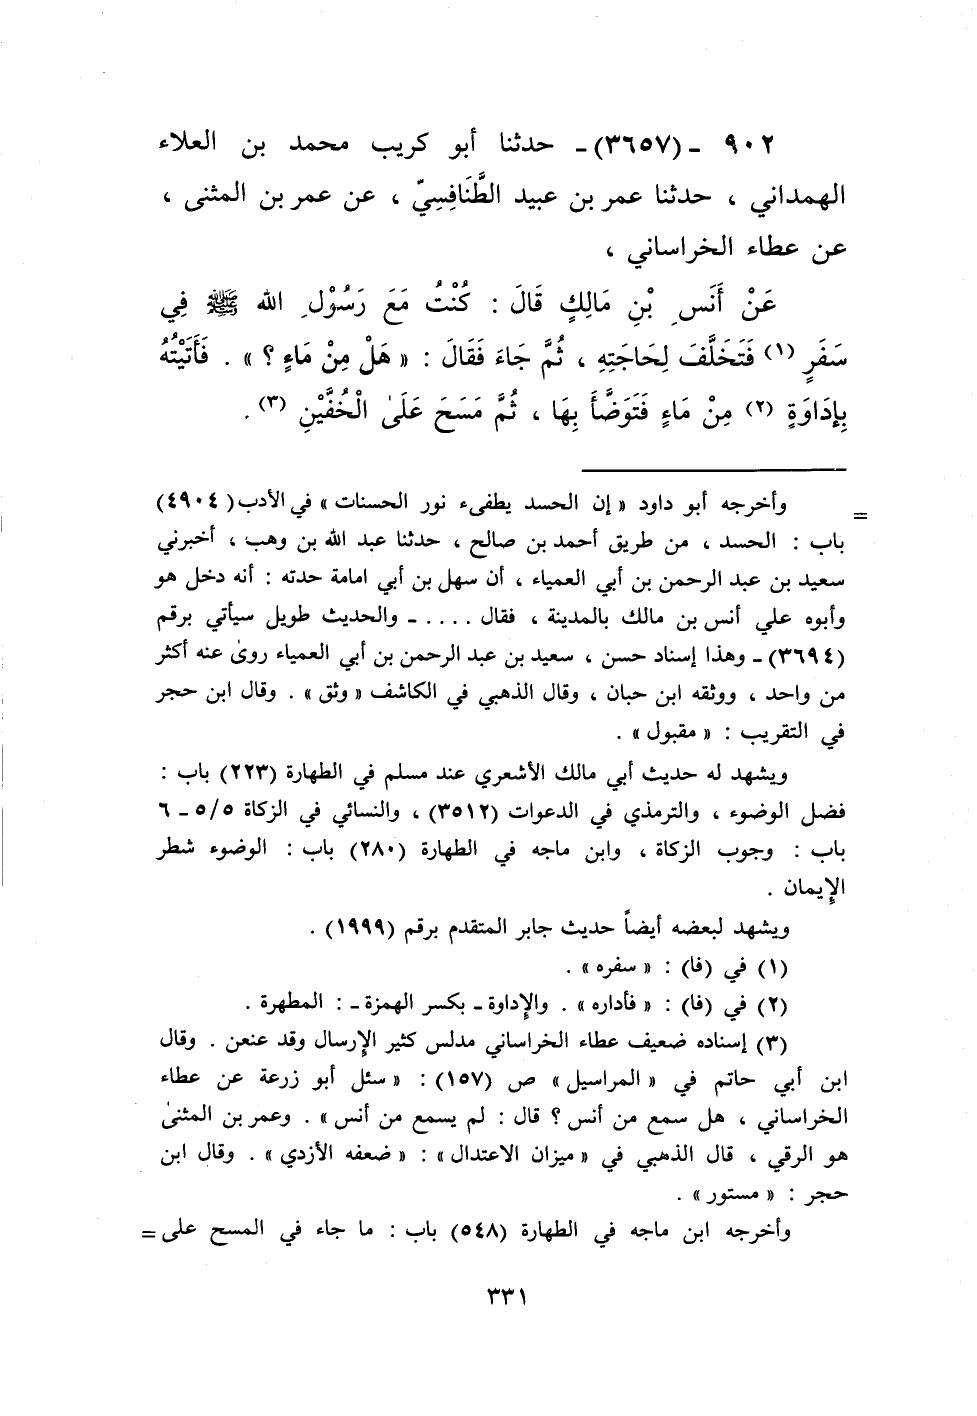 ٩٠٢ ـ (٣٦٥٧)ـ حدثنا أبو كريب محمد بن العلاء
الهمداني ، حدثنا عمر بن عبيد الطَّنَافِسِيّ ، عن عمر بن المثنى ،
عن عطاء الخراساني ،
عَنْ أَنَسِ بْنِ مَالِكٍ قَالَ : كُنْتُ مَعَ رَسُوْلِ الله ﷺ فِي
سَفَرٍ (١) فَتَخَلَّفَ لِحَاجَتِهِ ، ثُمَّ جَاءَ فَقَالَ : « هَلْ مِنْ مَاءٍ ؟ » . فَأَتَيْتُهُ
بِإدَاوَةٍ (٢) مِنْ مَاءٍ فَتَوَضَّأَ بِهَا ، ثُمَّ مَسَحَ عَلَىٰ الْخُفَّيْنِ (٣) .
= وأخرجه أبو داود « إن الحسد يطفىء نور الحسنات » في الأدب (٤٩٠٤)
باب : الحسد ، من طريق أحمد بن صالح ، حدثنا عبد الله بن وهب ، أخبرني
سعيد بن عبد الرحمن بن أبي العمياء ، أن سهل بن أبي امامة حدته : أنه دخل هو
وأبوه علي أنس بن مالك بالمدينة ، فقال .... ـ والحديث طويل سيأتي برقم
(٣٦٩٤) ـ وهذا إسناد حسن ، سعيد بن عبد الرحمن بن أبي العمياء روىٰ عنه أكثر
من واحد ، ووثقه ابن حبان ، وقال الذهبي في الكاشف « وثق » . وقال ابن حجر
في التقريب : « مقبول » .
ويشهد له حديث أبي مالك الأشعري عند مسلم في الطهارة (٢٢٣) باب :
فضل الوضوء ، والترمذي في الدعوات (٣٥١٢) ، والنسائي في الزكاة ٥/٥ ـ ٦
باب : وجوب الزكاة ، وابن ماجه في الطهارة (٢٨٠) باب : الوضوء شطر
الإيمان .
ويشهد لبعضه أيضاً حديث جابر المتقدم برقم (١٩٩٩) .
(١) في (فا) : « سفره » .
(٢) في (فا) : « فأداره » . والإداوة ـ بكسر الهمزة ـ : المطهرة .
(٣) إسناده ضعيف عطاء الخراساني مدلس كثير الإرسال وقد عنعن . وقال
ابن أبي حاتم في « المراسيل » ص (١٥٧) : « سئل أبو زرعة عن عطاء
الخراساني ، هل سمع من أنس ؟ قال : لم يسمع من أنس » . وعمر بن المثنىٰ
هو الرقي ، قال الذهبي في « ميزان الاعتدال » : « ضعفه الأزدي » . وقال ابن
حجر : « مستور » .
وأخرجه ابن ماجه في الطهارة (٥٤٨) باب : ما جاء في المسح على =
٣٣١